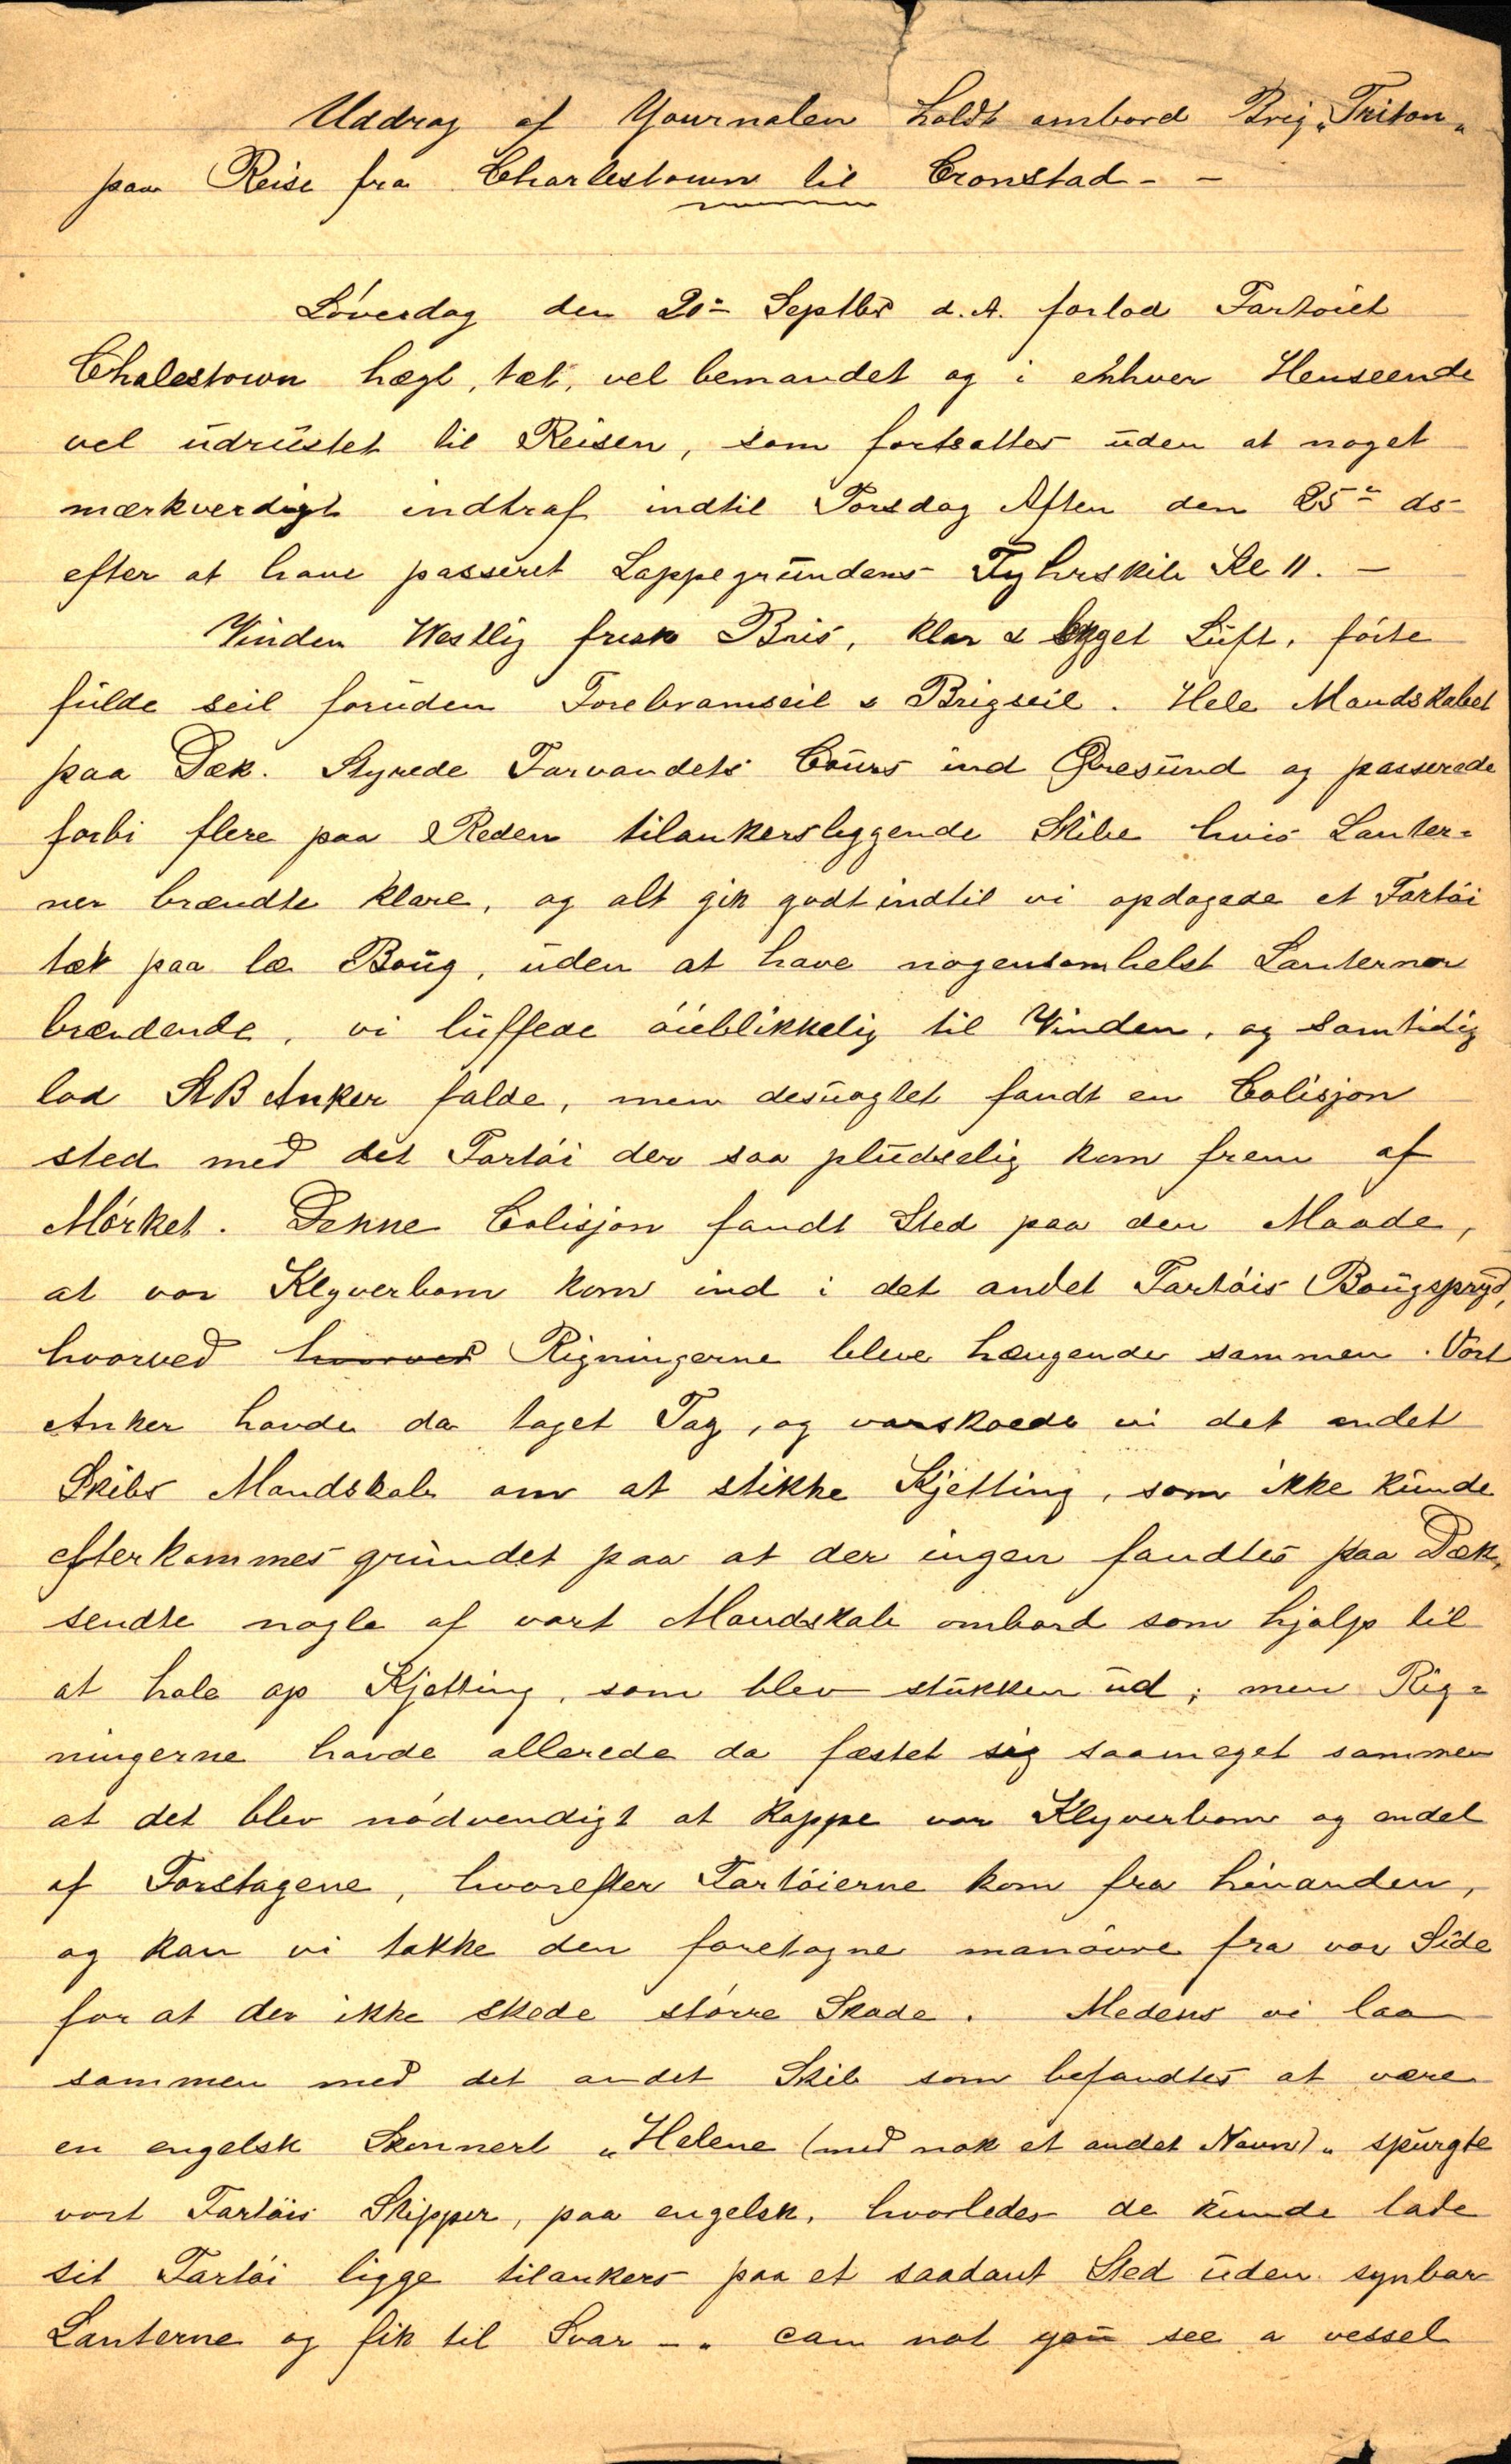 Uddrag af Yournalen holdt ombord Brig „Triton„
paa Reise fra Charlestown til Cronstad - -
Löverdag den 20de Septbr d. A. forlod Fartöiet
Chalestown hægt, tæt, vel bemandet og i enhver Henseende
vel udrustet til Reisen, som fortsattes uden at noget
mærkverdigt indtraf indtil Torsdag Aften den 25de ds
efter at have passeret Lappegrundens Fyhrskib Kl 11. -
Vinden Westlig frisk Bris, klar & skyet Luft, förte
fulde seil foruden Forebramseil & Brigseil. Hele Mandskabet
paa Dæk. Styrede Farvandets Cours ind Öresund og passerede
forbi flere paa Reden tilankersliggende Skibe hvis Lanter=
ner brændte klare, og alt gik godt indtil vi opdagede et Fartöi
tæt paa læ Boug, uden at have nogensomhelst Lanterner
brændende, vi luffede öieblikkelig til Vinden, og samtidig
lod StB Anker falde, men desuagtet fandt en Colisjon
sted med det Fartöi der saa pludselig kom frem af
Mörket. Denne Colisjon fandt Sted paa den Maade,
at vor Klyverbom kom ind i det andet Fartöis Bougspryd,
hvorved hvorved Rigningerne bleve hængende sammen. Vort
Anker havde da taget Tag, og varskoede vi det andet
Skibs Mandskab om at stikke Kjetting, som ikke kunde
efterkommes grundet paa at der ingen fandtes paa Dæk,
sendte nogle af vort Mandskab ombord som hjalp til
at hale op Kjetting, som blev stukken ud; men Rig=
ningerne havde allerede da fæstet sig saameget sammen
at det blev nödvendigt at kappe vor Klyverbom og endel
af Forstagene, hvorefter Fartöierne kom fra hinanden,
og kan vi takke den foretagne manöuvre fra vor Side
for at der ikke skede större Skade. Medens vi laa
sammen med det andet Skib som befandtes at være
en engelsk Skonnert „Helene (med nok et andet Navn)„ spurgte
vort Fartöis Skipper, paa engelsk, hvorledes de kunde lade
sit Fartöi ligge tilankers paa et saadant Sted uden synbar
Lanterne og fik til Svar - „ can not you see a vessel